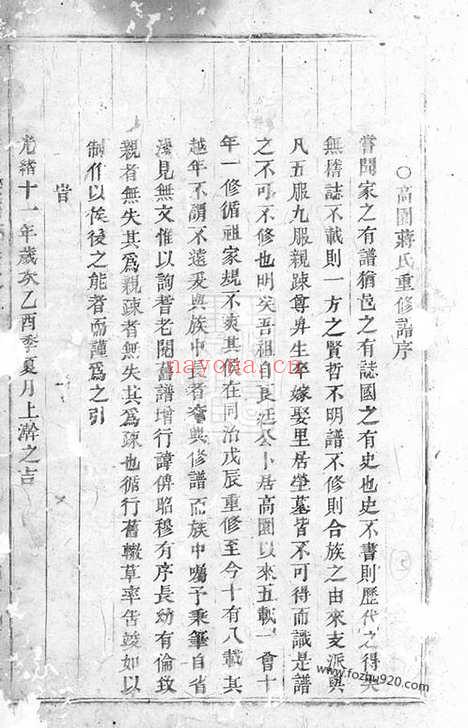 ○高園蔣氏重修譜序
嘗聞家之有譜猶邑之有誌國之有史也史不書則歷代之得失
無稽誌不載則一方之賢哲不明譜不修則合族之由來支派與
凡五服九服親疎尊卑生卒嫁娶里居塋墓皆不可得而識是譜
之不可不修也明矣吾祖自良廷公卜居高園以來五載一會十
年一修循祖家規不爽其候在同治戊辰重修至今十有八載其
越年不謂不遠爰與族中長者僉興修譜而族中囑予秉筆自省
淺見無文惟以詢耆老閱舊譜增行諱俾昭穆有序長幼有倫致
親者無失其為親疎者無失其為疎也循行舊轍草率告竣如以
制作以俟後之能者而謹為之引
旹
光緒十一年歲次乙酉季夏月上澣之吉
nayona.cn
www.fozhu920.com